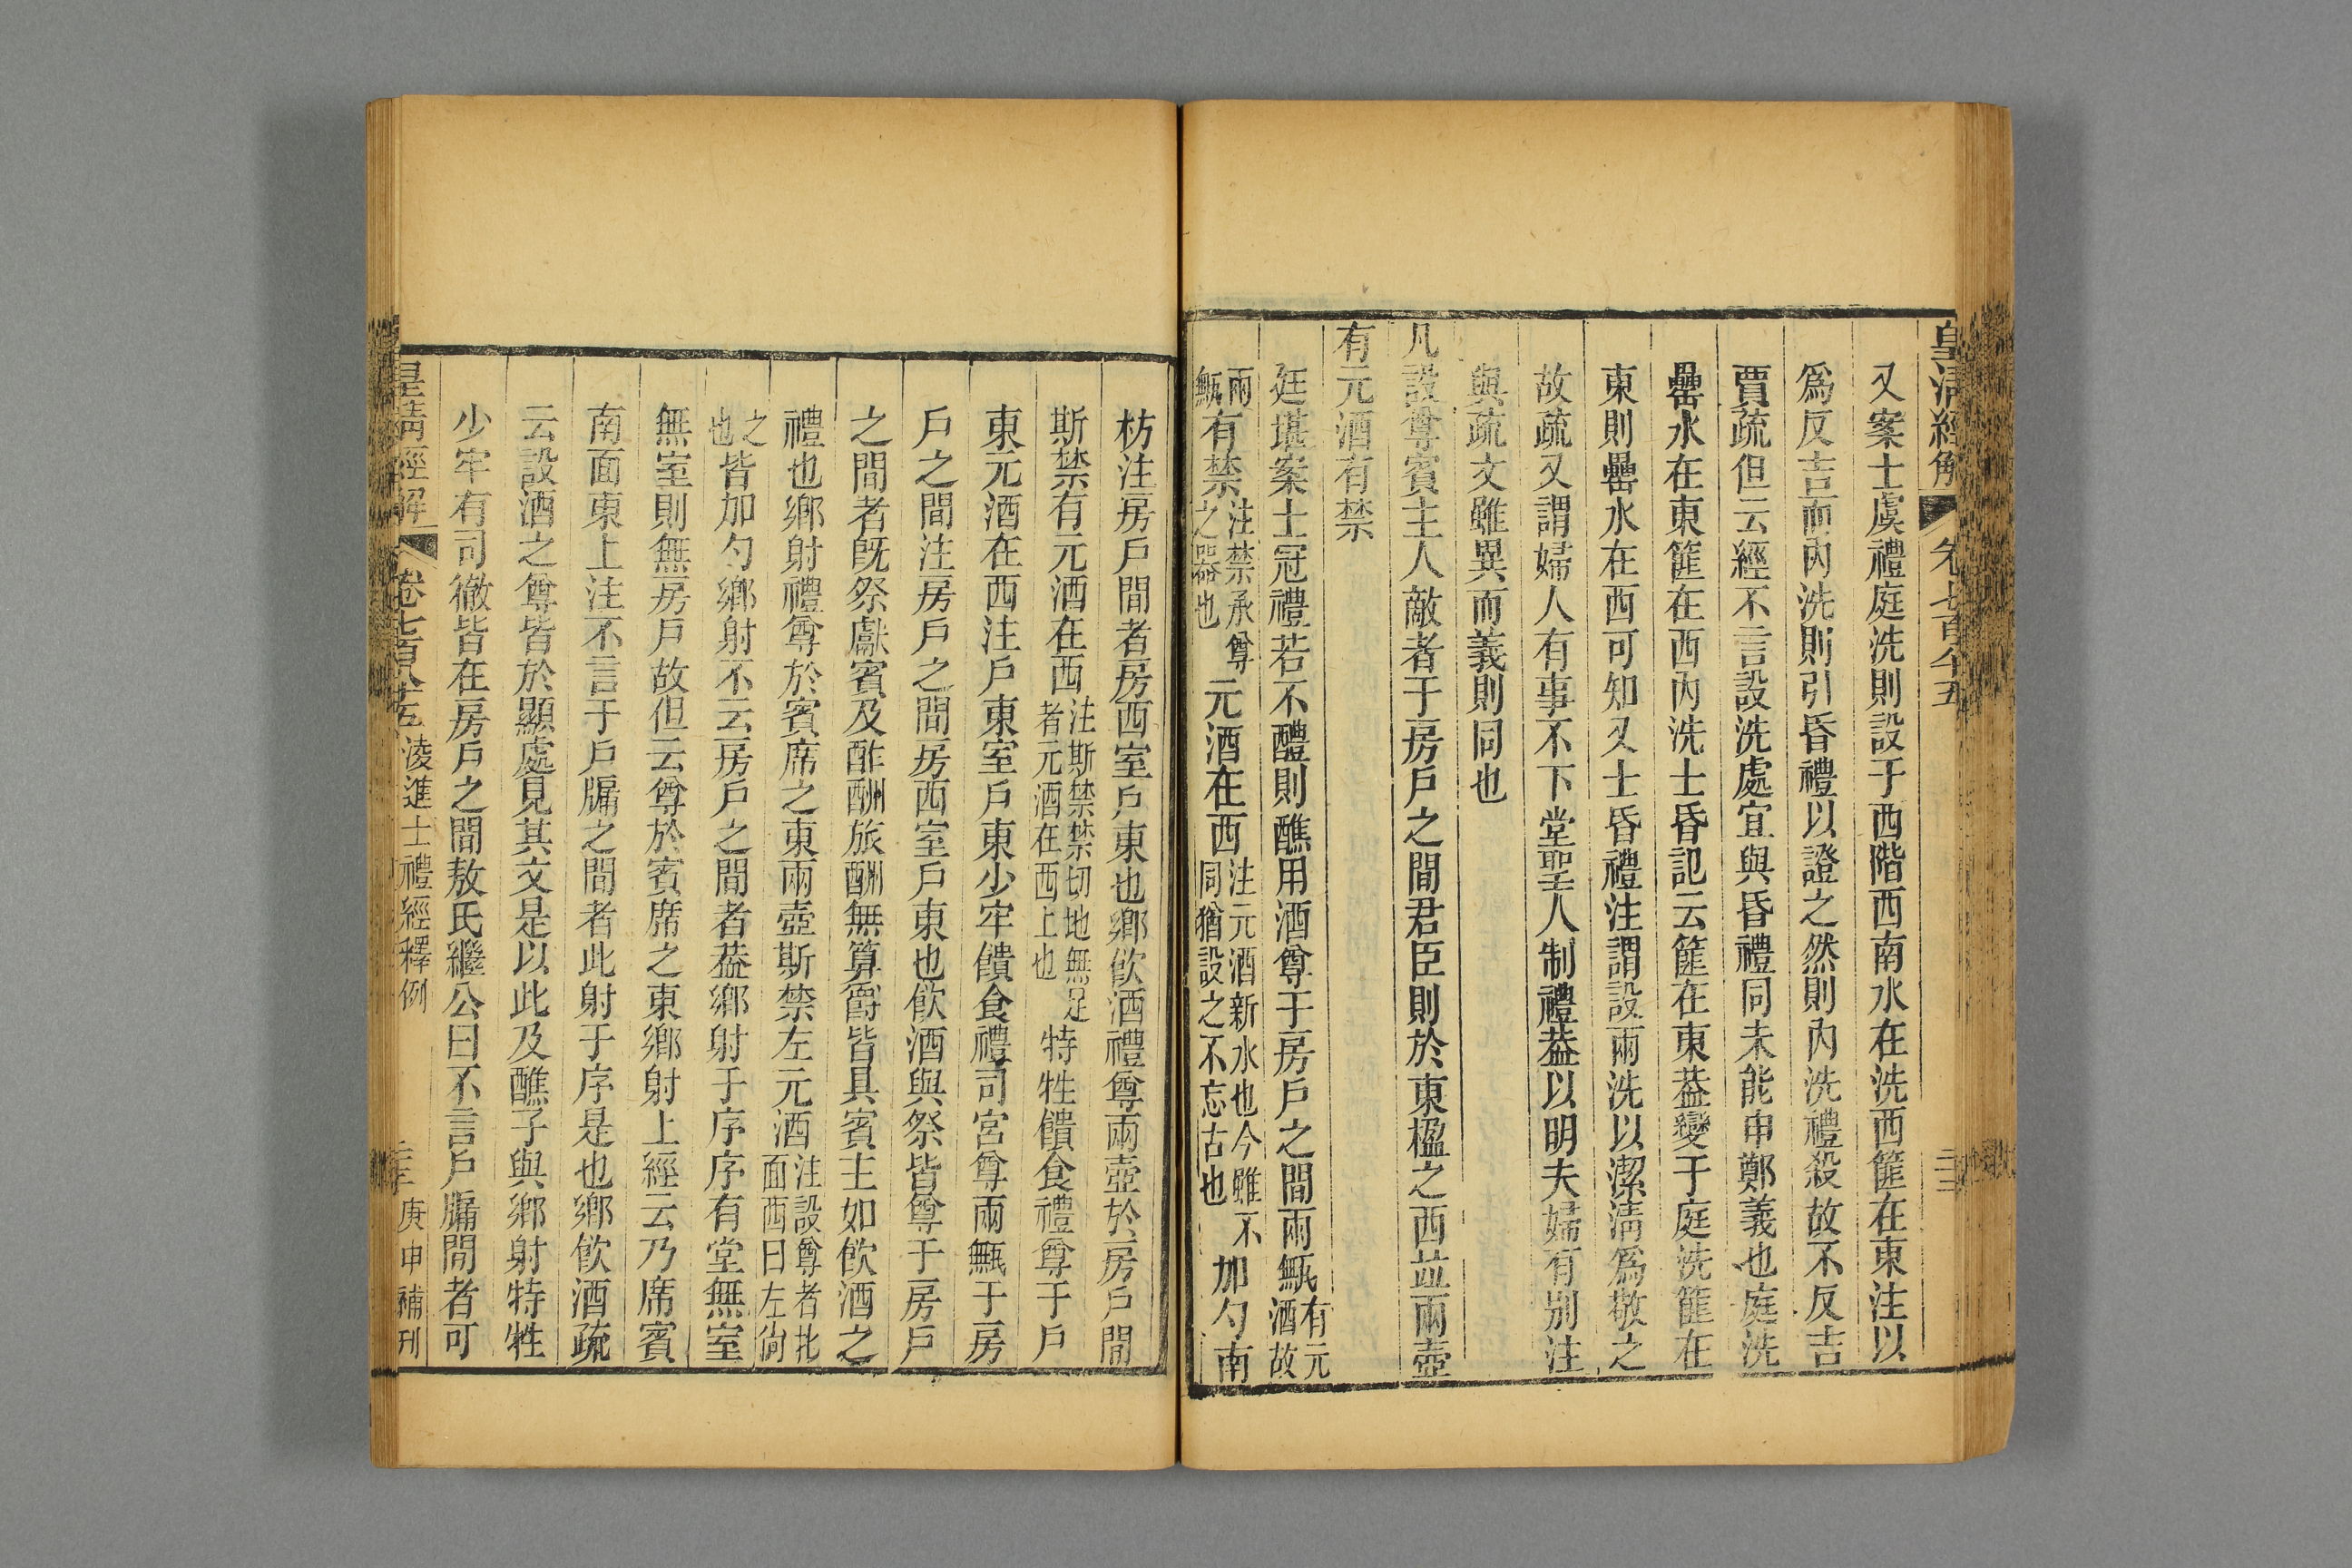 皇清經解 卷七百八十五
又案士虞禮庭洗則設于西階西南水在洗西篚在東注以
爲反吉而內洗則引昏禮以證之然則內洗禮殺故不反吉
賈疏但云經不言設洗處宜與昏禮同未能申鄭義也庭洗
罍水在東篚在西內洗士昏記云篚在東葢變于庭洗篚在
東則罍水在西可知又士昏禮注謂設兩洗以潔淸爲敬之
故疏又謂婦人有事不下堂聖人制禮葢以明夫婦有別注
與疏文雖異而義則同也
凡設尊賓主人敵者于房戶之間君臣則於東楹之西並兩壺
有元酒有禁
廷堪案士冠禮若不醴則醮用酒尊于房戶之間兩甒有元酒故
兩甒有禁注禁承尊之器也元酒在西注元酒新水也今雖不同猶設之不忘古也加勺南
枋注房戶間者房西室戶東也鄉飮酒禮尊兩壺於房戶間
斯禁有元酒在西注斯禁禁切地無足者元酒在西上也特牲饋食禮尊于戶
東元酒在西注戶東室戶東少牢饋食禮司宮尊兩甒于房
戶之間注房戶之間房西室戶東也飮酒與祭皆尊于房戶
之間者旣祭獻賓及酢酬旅酬無算爵皆具賓主如飮酒之
禮也鄉射禮尊於賓席之東兩壺斯禁左元酒注設尊者北面西曰左尙
之也皆加勺鄉射不云房戶之間者葢鄉射于序序有堂無室
無室則無房戶故但云尊於賓席之東鄉射上經云乃席賓
南面東上注不言于戶牖之間者此射于序是也鄉飮酒疏
云設酒之尊皆於顯處見其文是以此及醮子與鄉射特牲
少牢有司徹皆在房戶之間敖氏繼公曰不言戶牖間者可
皇淸經解 卷七百八十五 淩進士禮經釋例 庚申補刊